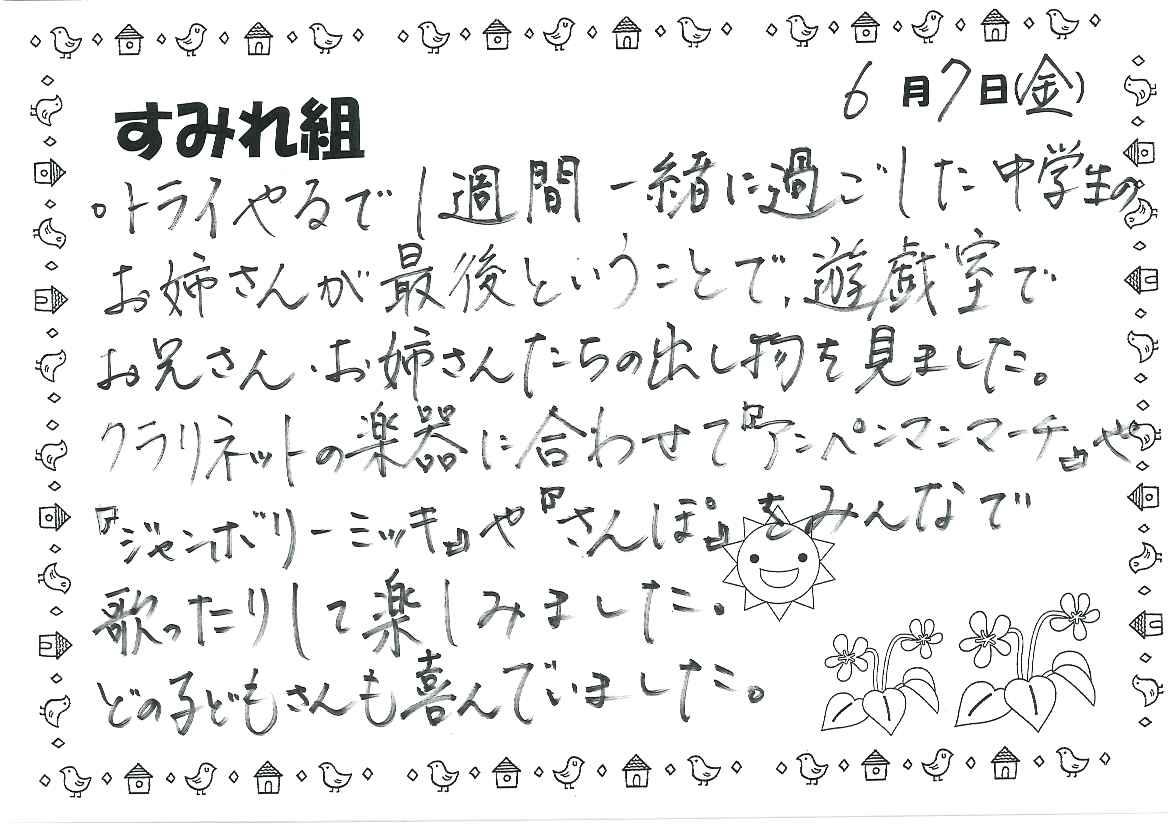 6月7日(金)
すみれ組
。トライやるで1週間一緒に過ごした中学生の
お姉さんが最後ということで、遊戯室で
お兄さん・お姉さんたちの出し物を見ました。
クラリネットの楽器に合わせて『アンペンマンマーチ』や
『ジャンボリーミッキ』や『さんぽ』をみんなで
歌ったりして楽しみました。
どの子どもさんも喜んでいました。